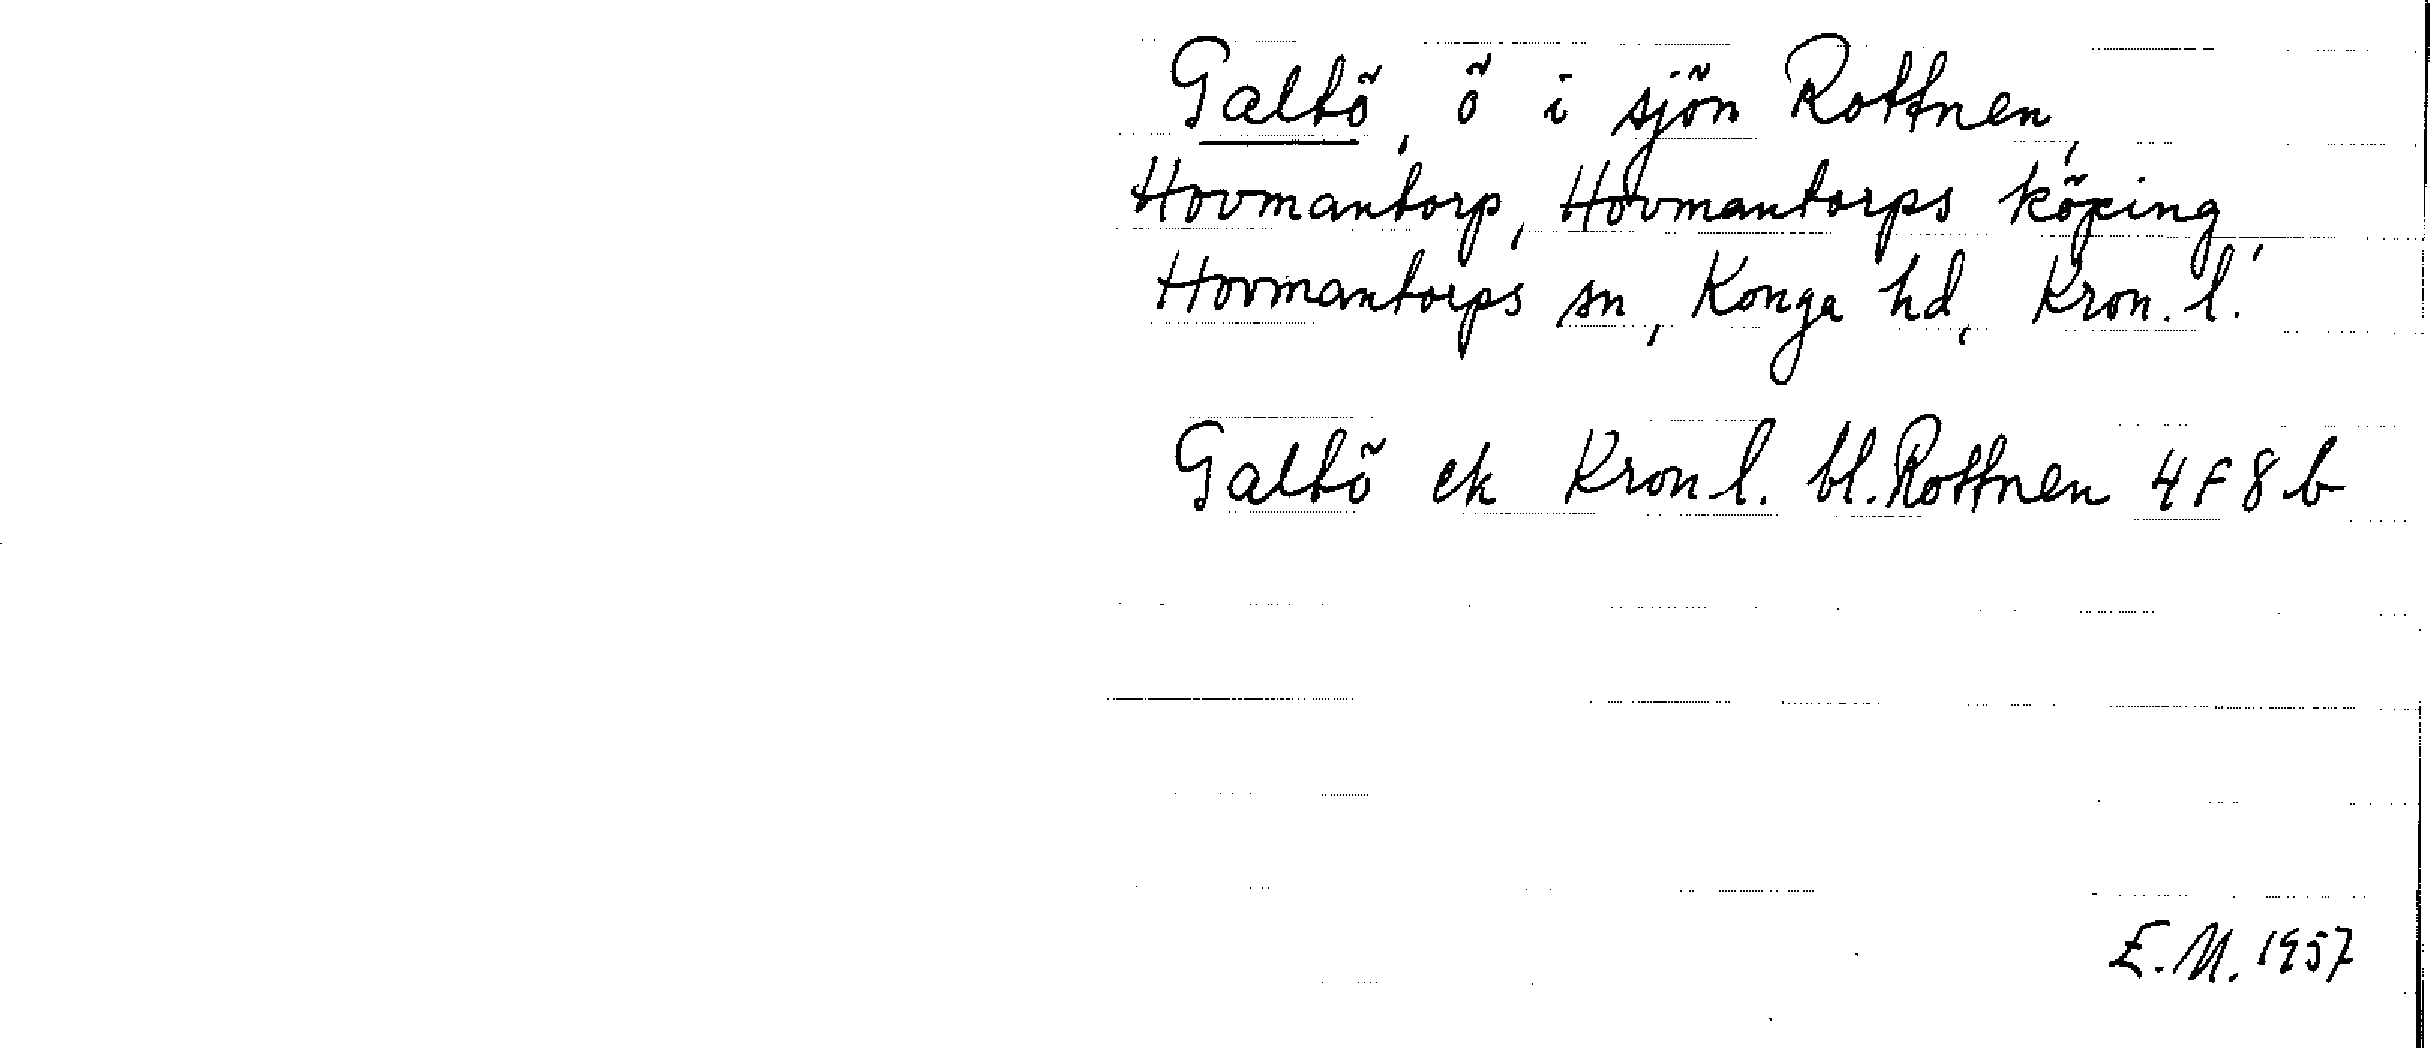 Galtö, ö i sjön Rottnen,
Hovmantorp, Hovmantorps köping,
Hovmantorps sn, Konga hd, Kron. l.
Galtö ek Kron l. bl. Rottnen 4 F 8 b
E.M. 1957